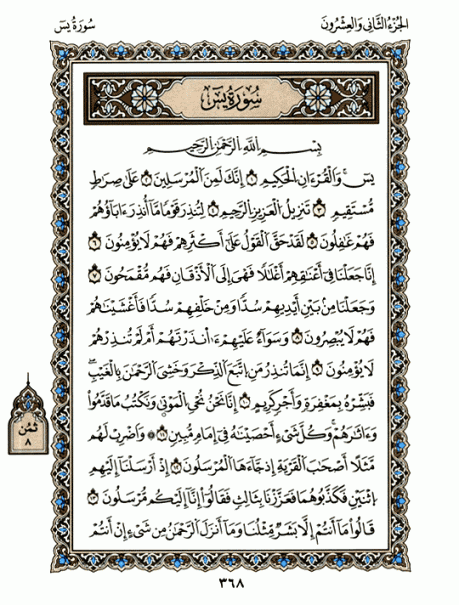 الجزء الثاني والعشرون
سورة يس
سُورَةُ يسٓ
بِسْمِ اللَّهِ الرَّحْمَٰنِ الرَّحِيمِ
يسٓ وَالْقُرْءَانِ الْحَكِيمِ ١ إِنَّكَ لَمِنَ الْمُرْسَلِينَ ٢ عَلَىٰ صِرَاطٍ
مُّسْتَقِيمٍ ٣ تَنزِيلُ الْعَزِيزِ الرَّحِيمِ ٤ لِتُنذِرَ قَوْمًا مَّا أُنذِرَ ءَابَاؤُهُمْ
فَهُمْ غَٰفِلُونَ ٥ لَقَدْ حَقَّ الْقَوْلُ عَلَىٰ أَكْثَرِهِمْ فَهُمْ لَا يُؤْمِنُونَ ٦
إِنَّا جَعَلْنَا فِي أَعْنَٰقِهِمْ أَغْلَٰلًا فَهِيَ إِلَى الْأَذْقَانِ فَهُم مُّقْمَحُونَ ٧
وَجَعَلْنَا مِن بَيْنِ أَيْدِيهِمْ سُدًّا وَمِنْ خَلْفِهِمْ سُدًّا فَأَغْشَيْنَٰهُمْ
فَهُمْ لَا يُبْصِرُونَ ٨ وَسَوَآءٌ عَلَيْهِمْ ءَأَنذَرْتَهُمْ أَمْ لَمْ تُنذِرْهُمْ
لَا يُؤْمِنُونَ ٩ إِنَّمَا تُنذِرُ مَنِ اتَّبَعَ الذِّكْرَ وَخَشِيَ الرَّحْمَٰنَ بِالْغَيْبِ
فَبَشِّرْهُ بِمَغْفِرَةٍ وَأَجْرٍ كَرِيمٍ ١٠ إِنَّا نَحْنُ نُحْيِ الْمَوْتَىٰ وَنَكْتُبُ مَا قَدَّمُوا
وَءَاثَٰرَهُمْ وَكُلَّ شَيْءٍ أَحْصَيْنَٰهُ فِي إِمَامٍ مُّبِينٍ ١١ وَاضْرِبْ لَهُم
مَّثَلًا أَصْحَٰبَ الْقَرْيَةِ إِذْ جَآءَهَا الْمُرْسَلُونَ ١٢ إِذْ أَرْسَلْنَا إِلَيْهِمُ
اثْنَيْنِ فَكَذَّبُوهُمَا فَعَزَّزْنَا بِثَالِثٍ فَقَالُوا إِنَّا إِلَيْكُم مُّرْسَلُونَ ١٣
قَالُوا مَا أَنتُمْ إِلَّا بَشَرٌ مِّثْلُنَا وَمَا أَنزَلَ الرَّحْمَٰنُ مِن شَيْءٍ إِنْ أَنتُمْ
ثمن
٨
٣٦٨